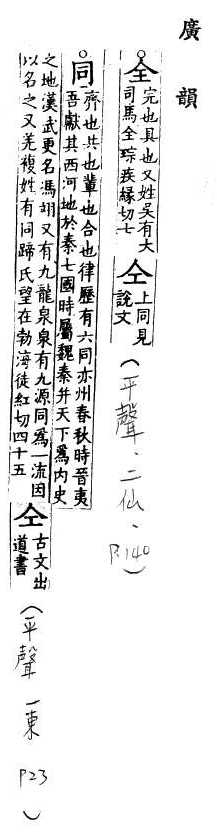 廣韻
○全
完也具也又姓吳有大
司馬全琮疾緣切七
仝
上同見
說文
(平聲、二仙、P.140)
○同
齊也共也輩也合也律歷有六同亦州春秋時晉夷
吾獻其西河地於秦七國時屬魏秦并天下爲內史
之地漢武更名馮翊又有九龍泉泉有九源同爲一流因
以名之又羌複姓有同蹄氏望在勃海徒紅切四十五
仝
古文出
道書
(平聲 一東 P23)